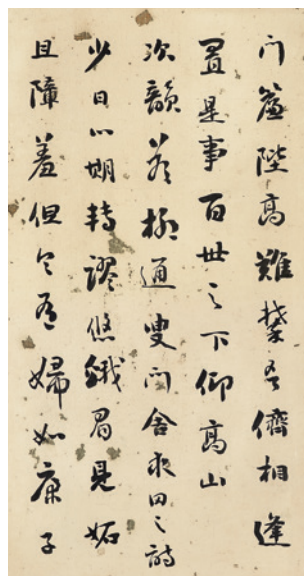 門廉陛高難攀吾儕相逢
置是事百世之下仰高山
次韻答柳通叟問舍求田之詩
少日心期轉謬悠蛾眉見妬
且障羞但令有婦如康子